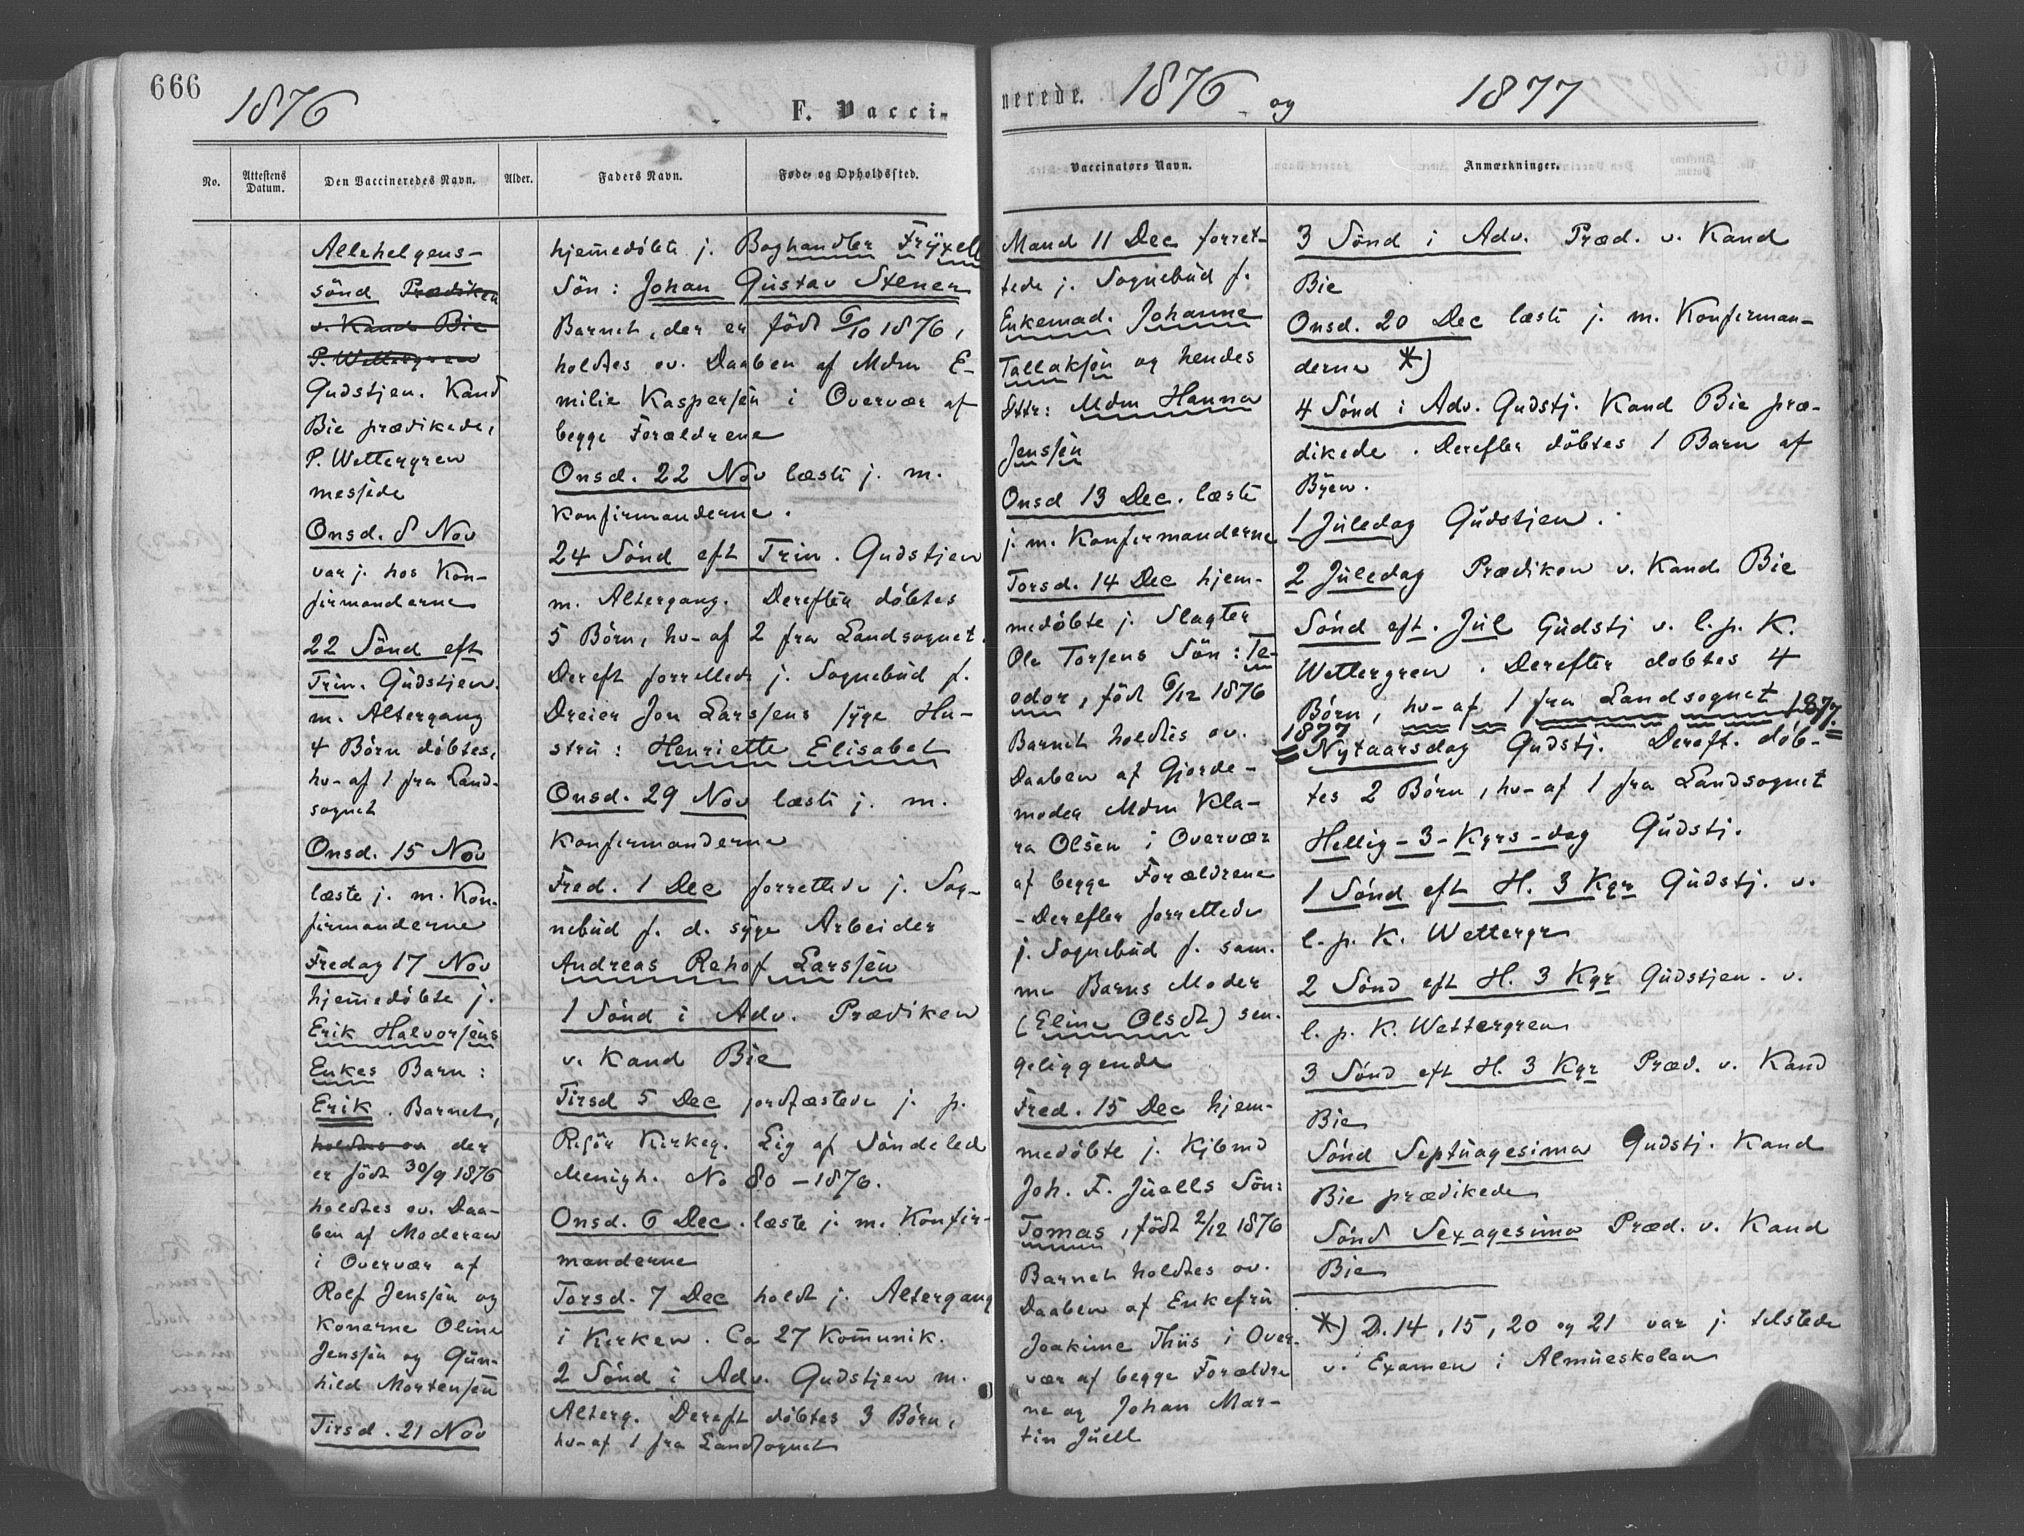 666
1876
F. Vacci-
No.
Attestens Datum.
Den Vaccineredes Navn.
Alder.
Faders Navn.
Føde- og Opholdssted.
Allehelgens-
sönd Prædiken
v. Kand Bie
P. Wettergren
Gudstjen. Kand
Bie prædikede,
P. Wettergren
messede
Onsd. 8 Nov
var j. hos Kon-
firmanderne
22 Sönd eft
Trin. Gudstjen.
m. Altergang
4 Börn döbtes,
hv- af 1 fra Land-
sognet
Onsd. 15 Nov
læste j. m. Kon-
firmanderne
Fredag 17 Nov
hjemedöbte j.
Erik Halvorsens
Enkes Barn:
Erik. Barnet,
holdtes ov der
er födt 30/9 1876
holdtes ov. Daa-
ben af Moderen
i Overvær af
Rolf Jenssen og
Konerne Oline
Jenssen og Gun-
hild Mortensen
Tirsd. 21 Nov
hjemedöbte j. Boghandler Fryxell
Sön: Johan Gustav Stener
Barnet, der er födt 6/10 1876,
holdtes ov. Daaben af Mdm E-
milie Kaspersen i Overvær af
begge Forældrene
Onsd. 22 Nov læste j. m.
Konfirmanderne.
24 Sönd eft Trin. Gudstjen
m. Altergang. Derefter döbtes
5 Börn, hv- af 2 fra Landsognet.
Dereft forrettede j. Sognebud f.
Dreier Jon Larssens syge Hu-
stru: Henriette Elisabet
Onsd. 29 Nov læste j. m.
Konfirmanderne
Fred. 1 Dec forrettede j. Sog-
nebud f. d. syge Arbeider
Andreas Rehof Larssen
1 Sönd i Adv. Prædiken
v. Kand Bie
Tirsd 5 Dec jordfæstede j. p.
Risör Kirkeg. Lig af Söndeled
Menigh. No 80 - 1876.
Onsd. 6 Dec. læste j. m. Konfir-
manderne
Torsd. 7 Dec holdt j. Altergang
i Kirken. Ca 27 Komunik.
2 Sönd i Adv. Gudstjen m.
Alterg. Dereft döbtes 3 Börn,
hv-af 1 fra Landsognet
nerede.
1876 og 1877
Vaccinators Navn.
Anmærkninger.
Mand 11 Dec forret-
tede j. Sognebud f.
Enkemad. Johanne
Tallaksen og hendes
Sttr: Mdm Hanna
Jenssen
Onsd 13 Dec. læste
j. m. Konfirmanderne
Torsd. 14 Dec hjem-
medöbte j. Slagter
Ole Torsens Sön: Te-
odor, födt 6/12 1876
Barnet holdtes ov.
Daaben af Gjorde-
moder Mdm Kla-
ra Olsen i Overvær
af begge Forældrene
- Derefter forrettede
j. Sognebud f. sam-
me Barns Moder
(Eline Olsdt) sen-
geliggende
Fred. 15 Dec hjem-
medöbte j. Kjöbmd
Joh. F. Juells Sön:
Tomas, födt 2/12 1876
Barnet holdtes ov.
Daaben af Enkefru
Joakime Thiis i Over-
vær af begge Forældre
ne og Johan Mar-
tin Juell
3 Sönd i Adv. Præd. v. Kand
Bie
Onsd. 20 Dec læste j. m. Konfirman-
derne *)
4 Sönd i Adv. Gudstj. Kand Bie præ-
dikede. Derefter döbtes 1 Barn af
Byen.
1 Juledag Gudstjen.
2 Juledag Prædiken v. Kand Bie
Sönd eft. Jul Gudstj v. l. p. K.
Wettergren. Derefter döbtes 4
Börn, hv-af 1 fra Landsognet 1877.
1877
Nytaarsdag Gudstj. Dereft. döb-
tes 2 Börn, hv-af 1 fra Landsognet
Hellig-3-Kgrs-dag Gudstj.
1 Sönd eft H. 3 Kgr Gudstj. v.
l. p. K. Wettergr
2 Sönd eft H. 3 Kgr Gudstjen. v.
l. p. K. Wettergren
3 Sönd eft H. 3 Kgr Præd. v. Kand
Bie
Sönd Septuagesima Gudstj. Kand
Bie prædikede
Sönd Sexagesima Præd. v. Kand
Bie
*) D. 14, 15, 20 og 21 var j. tilstede
v. Examen i Almueskolen